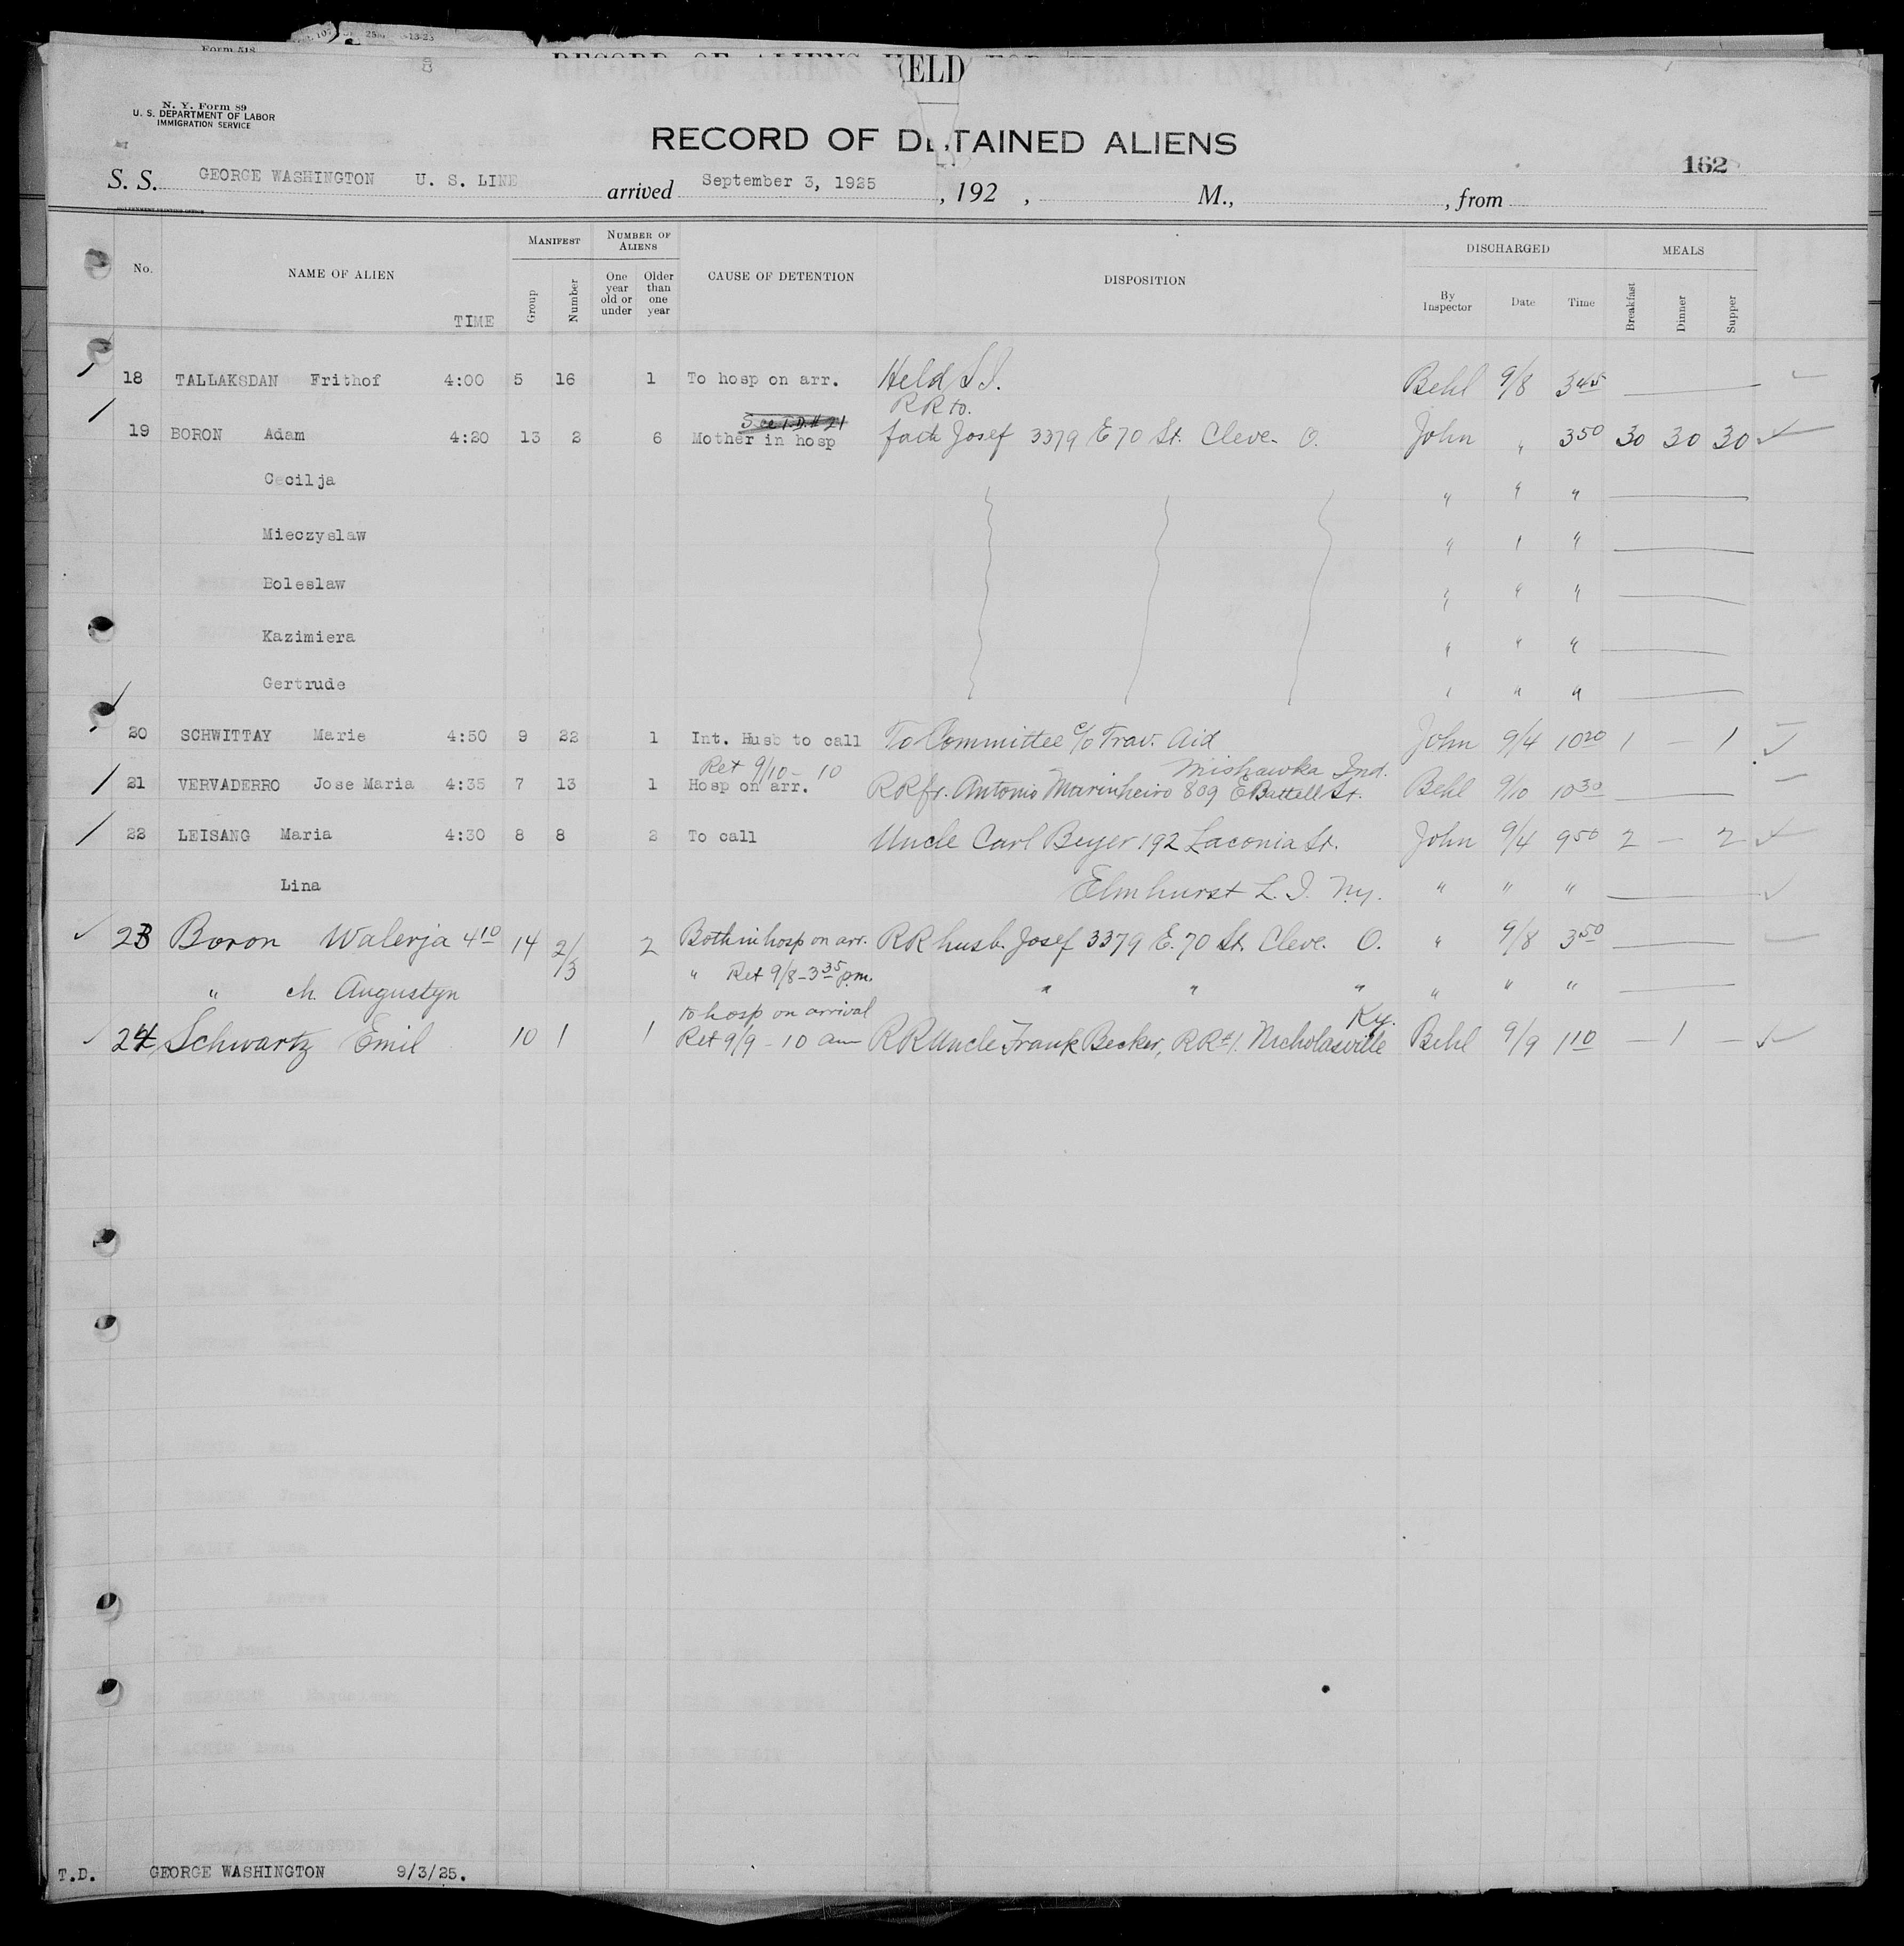 Form 518
107
25M
-13-23
RECORD OF ALIENS HELD FOR SPECIAL INQUIRY
N. Y. Form 89
U. S. DEPARTMENT OF LABOR
IMMIGRATION SERVICE
RECORD OF DETAINED ALIENS
162
S. S. GEORGE WASHINGTON U. S. LINE arrived September 3, 1925, 192 , M., , from
GOVERNMENT PRINTING OFFICE
No. NAME OF ALIEN TIME MANIFEST Group Number NUMBER OF ALIENS One year old or under Older than one year CAUSE OF DETENTION DISPOSITION DISCHARGED By Inspector Date Time MEALS Breakfast Dinner Supper
18 TALLAKSDAN Frithof 4:00 5 16 1 To hosp on arr. Held S I. Behl 9/8 3 45
See T.D. # 21 RR to.
19 BORON Adam 4:20 13 2 6 Mother in hosp fath Josef 3379 E 70 St. Cleve. O. John " 3 50 30 30 30
Cecilja " " "
Mieczyslaw " " "
Boleslaw " " "
Kazimiera " " "
Gertrude " " "
20 SCHWITTAY Marie 4:50 9 22 1 Int. Husb to call To Committee c/o Trav. Aid John 9/4 10 20 1 — 1
Ret 9/10 - 10 Mishawka Ind.
21 VERVADERRO Jose Maria 4:35 7 13 1 Hosp on arr. RR fr. Antonio Marinheiro 809 E Battell St. Behl 9/10 10 30
22 LEISANG Maria 4:30 8 8 2 To call Uncle Carl Beyer 192 Laconia St. John 9/4 9 50 2 — 2
Lina Elmhurst L. I. N.y. " " "
23 Boron Walerja 4 10 14 2/3 2 Both in hosp on arr. RR husb. Josef 3379 E. 70 St. Cleve. O. " 9/8 3 50
" Ret 9/8 - 3 35 p.m.
" ch. Augustyn " " " " " "
to hosp on arrival Ky.
24 Schwartz Emil 10 1 1 Ret 9/9 - 10 am RR Uncle Frank Becker, RR #1. Nicholasville Behl 9/9 1 10 — 1 —
T.D. GEORGE WASHINGTON 9/3/25.